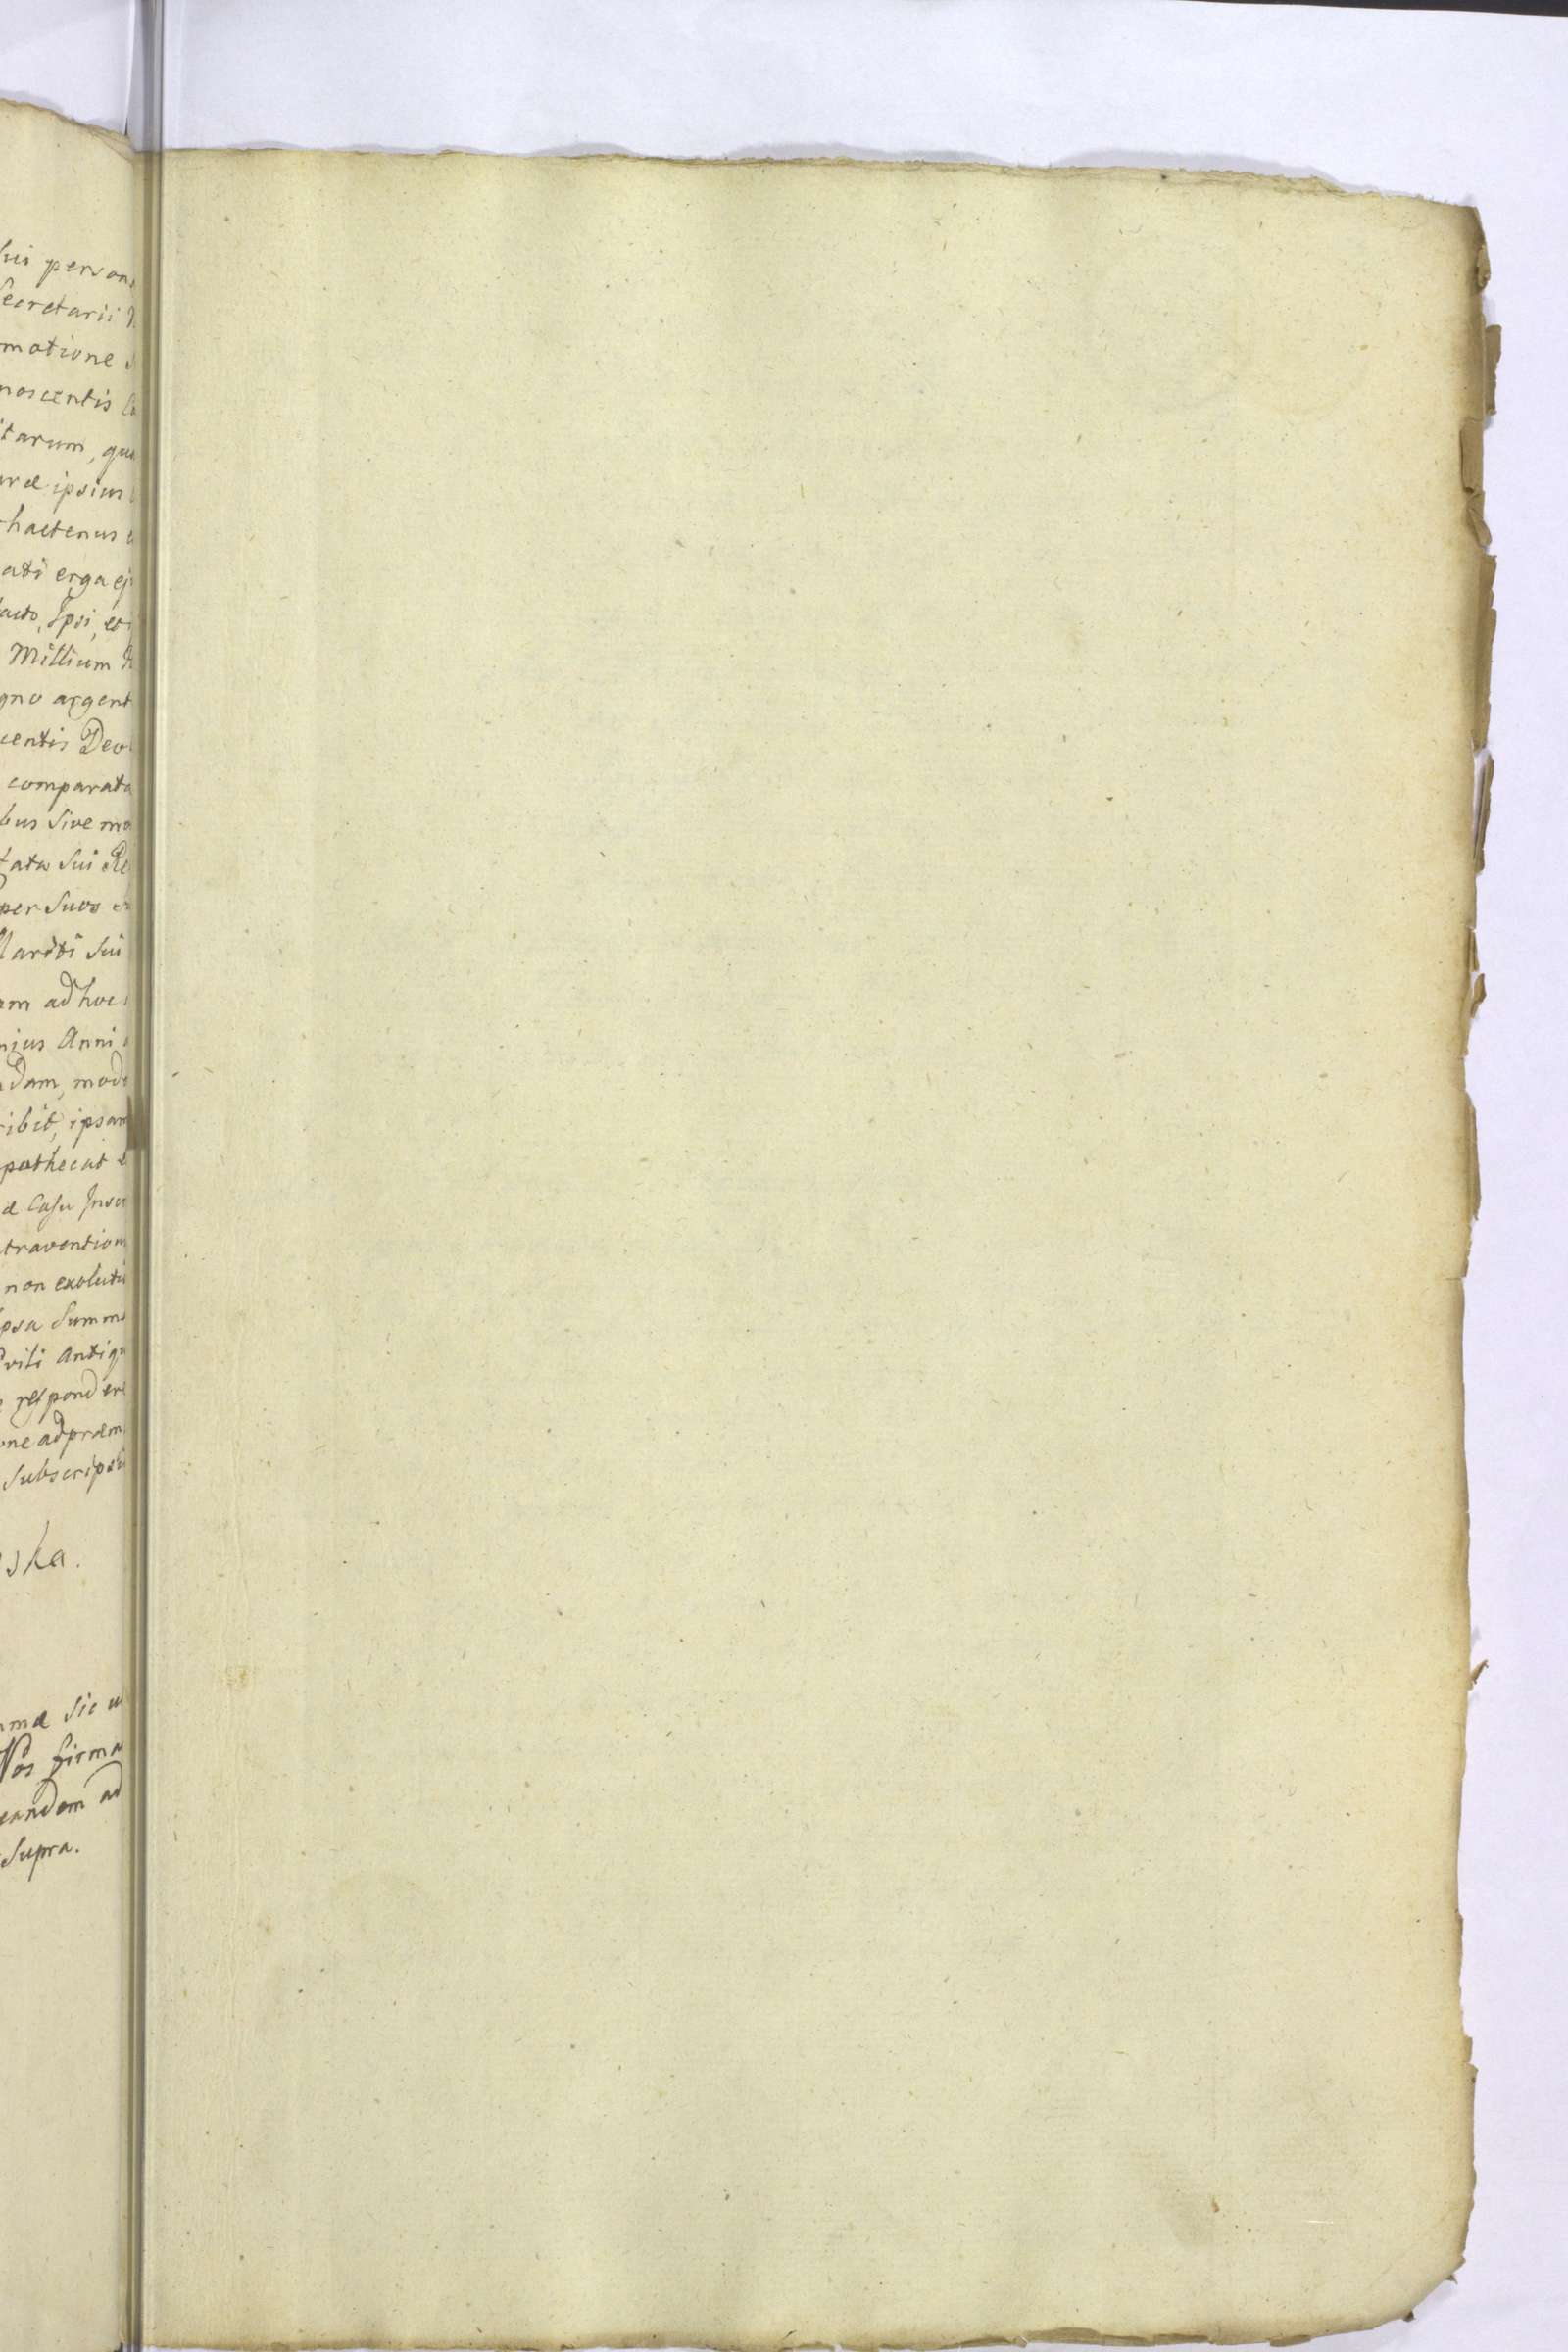 sui person
Secretarii
motione
noscentis
itarum, qu
ipsius
hactenus
ati erga ej
Ipsi, et
Millium
gno argent
centis Dev
comparata
bus sive m
tata sui Re
per suos
sui
am ad hoc
nius Anni
dam, modo
ribit, ipsam
pothecat
Casu Insu
traventiom
non exoluta
psa summ
Antiqu
respondere
one ad præm
subscripsi
ska.
mæ sic u
Nos firma
eandem ad
supra.